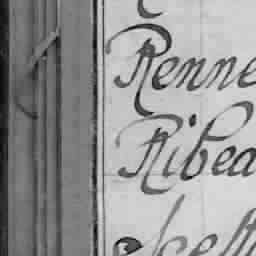 Renne
Ribea